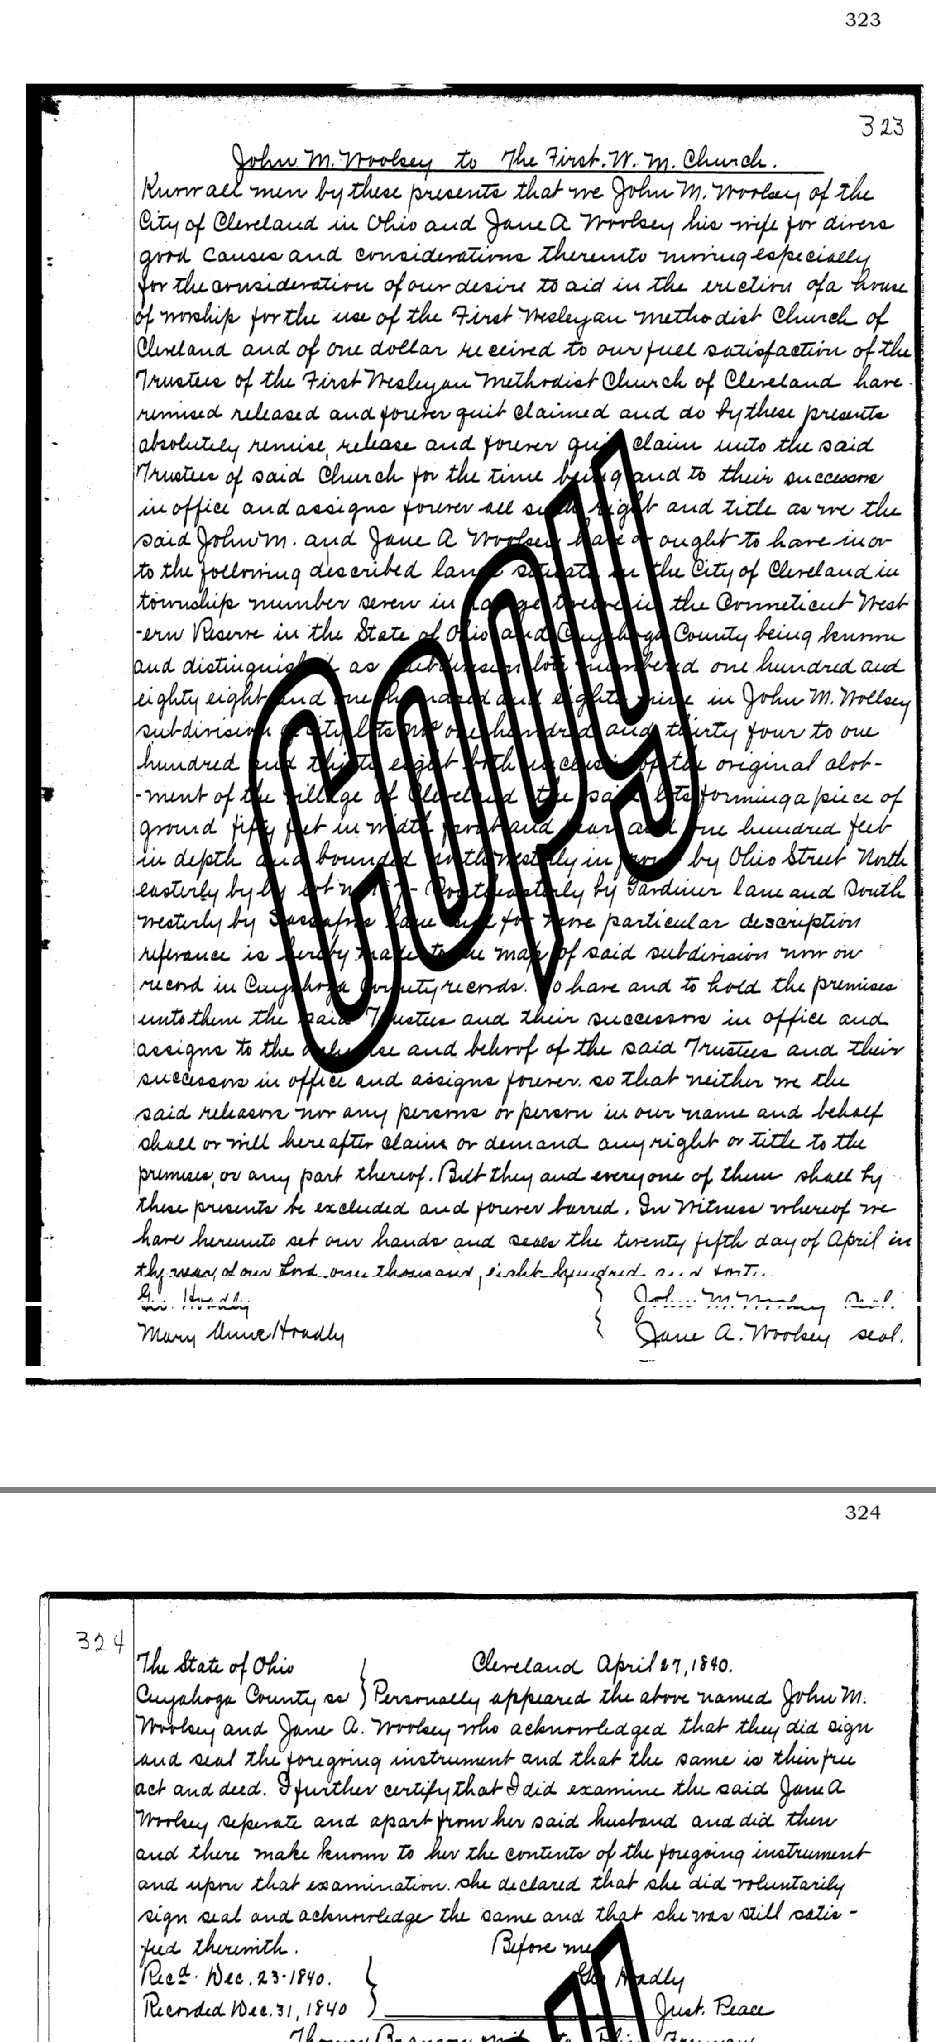 323
323
John M. Woolsey to The First. W. M. Church.
Know all men by these presents that we John M. Woolsey of the
City of Cleveland in Ohio and Jane A Woolsey his wife for divers
good causes and considerations thereunto moving especially
for the consideration of our desire to aid in the erection of a house
of worship for the use of the First Wesleyan Methodist Church of
Cleveland and of one dollar received to our full satisfaction of the
Trustees of the First Wesleyan Methodist Church of Cleveland have
remised released and forever quit claimed and do by these presents
absolutely remise, release and forever quit claim unto the said
Trustees of said Church for the time being and to their successors
in office and assigns forever all such right and title as we the
said John M. and Jane A Woolsey have or ought to have in or
to the following described land situate in the City of Cleveland in
township number seven in range twelve in the Conneticut West
-ern Reserve in the State of Ohio and Cuyahoga County being known
and distinguished as subdivision lots numbered one hundred and
eighty eight and one hundred and eighty nine in John M. Wollsey
subdivision of city lots no one hundred and thirty four to one
hundred and thirty eight both inclusive of the original alot-
-ment of the village of Cleveland the said lots forming a piece of
ground fifty feet in width front and rear and one hundred feet
in depth and bounded northwesterly in front by Ohio Street North
easterly by by lot no Southeasterly by Gardiner lane and South
westerly by Sassafras lane and for more particular description
referance is hereby made to the map of said subdivision now on
record in Cuyahoga County records. To have and to hold the premises
unto them the said Trustees and their successors in office and
assigns to the only use and behoof of the said Trustees and their
successors in office and assigns forever. so that neither we the
said releasors nor any persons or person in our name and behalf
shall or will hereafter claim or demand any right or title to the
premises, or any part thereof. But they and everyone of them shall by
these presents be excluded and forever barred. In Witness whereof we
have hereunto set our hands and seals the twenty fifth day of April in
the year of our Lord one thousand, eight hundred and forty.
Geo. Hoadly } John M. Woolsey seal.
Mary Anne Hoadly Jane A. Woolsey seal.
324
324
The State of Ohio } Cleveland April 27, 1840.
Cuyahoga County ss Personally appeared the above named John M.
Woolsey and Jane A. Woolsey who acknowledged that they did sign
and seal the foregoing instrument and that the same is their free
act and deed. I further certify that I did examine the said Jane A
Woolsey seperate and apart from her said husband and did then
and there make known to her the contents of the foregoing instrument
and upon that examination. she declared that she did voluntarily
sign seal and acknowledge the same and that she was still satis-
fied therewith. Before me
Recd. Dec. 23-1840. } Geo Hoadly
Recorded Dec. 31, 1840 Just. Peace